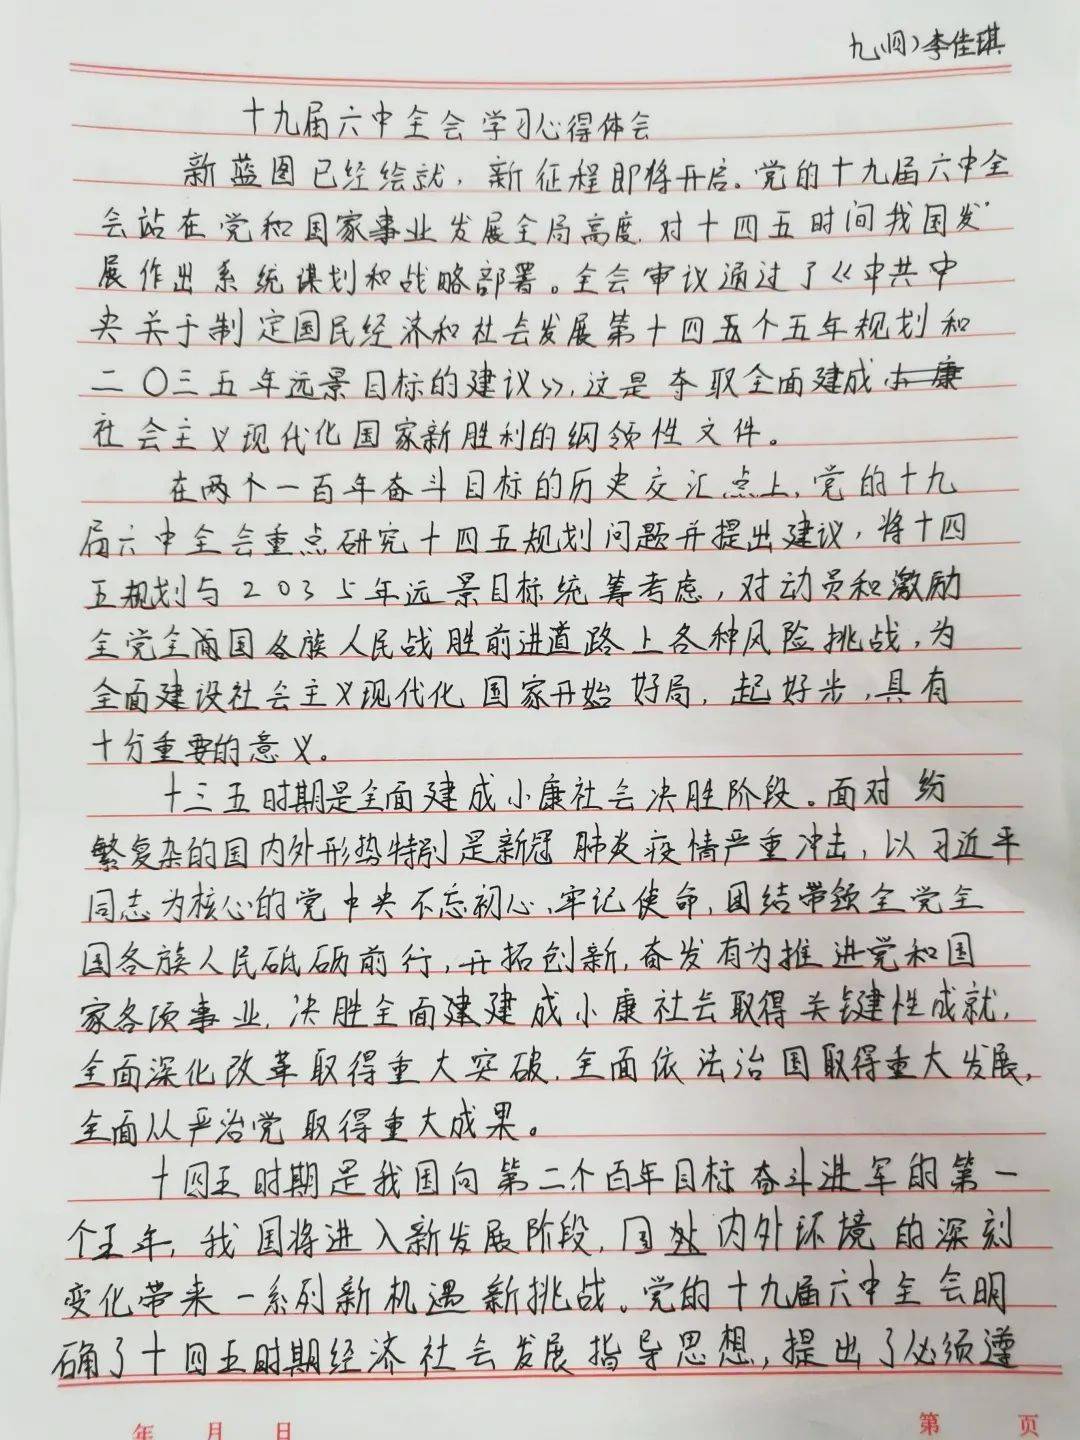 九(四)李佳琪
十九届六中全会学习心得体会
新蓝图已经绘就,新征程即将开启。党的十九届六中全
会站在党和国家事业发展全局高度,对十四五时间我国发
展作出系统谋划和战略部署。全会审议通过了《中共中
央关于制定国民经济和社会发展第十四五个五年规划和
二〇三五年远景目标的建议》,这是夺取全面建成小康
社会主义现代化国家新胜利的纲领性文件。
在两个一百年奋斗目标的历史交汇点上,党的十九
届六中全会重点研究十四五规划问题并提出建议,将十四
五规划与2035年远景目标统筹考虑,对动员和激励
全党全国各族人民战胜前进道路上各种风险挑战,为
全面建设社会主义现代化国家开始好局,起好步,具有
十分重要的意义。
十三五时期是全面建成小康社会决胜阶段。面对纷
繁复杂的国内外形势特别是新冠肺炎疫情严重冲击,以习近平
同志为核心的党中央不忘初心、牢记使命,团结带领全党全
国各族人民砥砺前行,开拓创新,奋发有为推进党和国
家各项事业,决胜全面建建成小康社会取得关键性成就,
全面深化改革取得重大突破,全面依法治国取得重大发展,
全面从严治党取得重大成果。
十四五时期是我国向第二个百年目标奋斗进军的第一
个五年,我国将进入新发展阶段,国处内外环境的深刻
变化带来一系列新机遇新挑战。党的十九届六中全会明
确了十四五时期经济社会发展指导思想,提出了必须遵
年 月 日
第 页